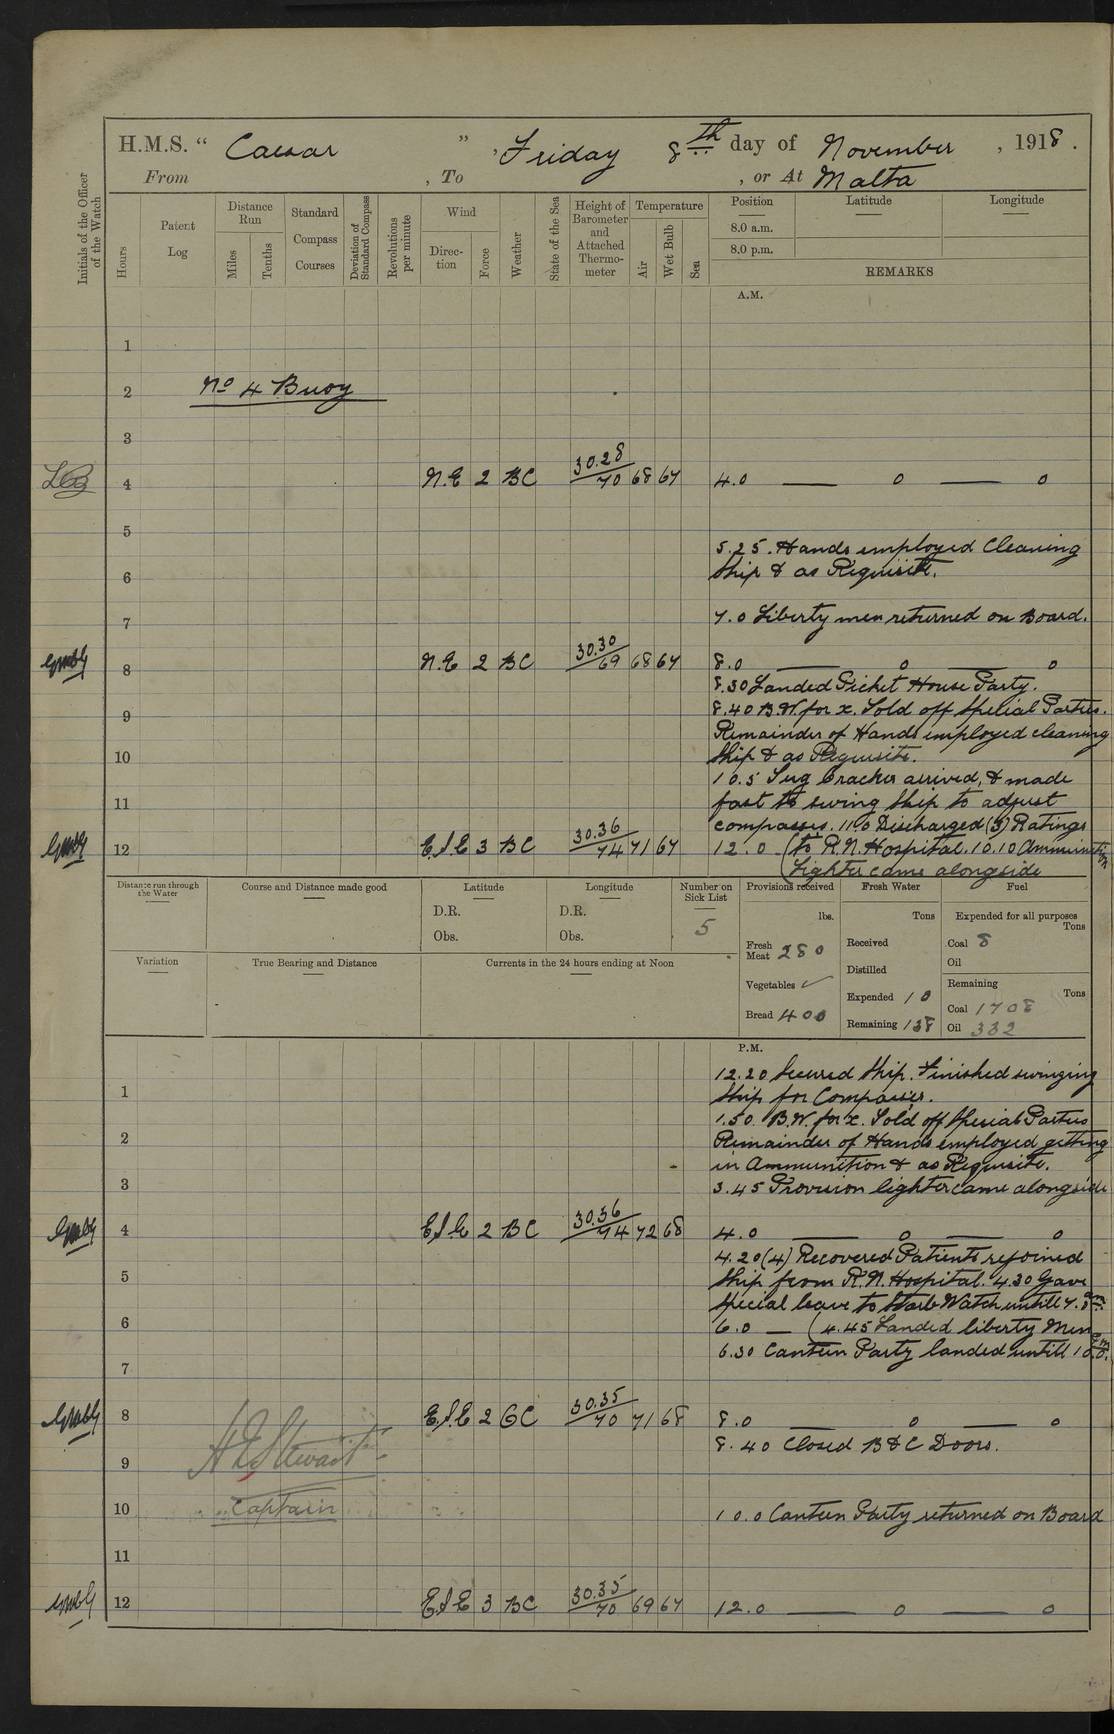 H.M.S. “ Caesar ” , Friday 8th day of November , 1918 .
From , To , or At Malta
Initials of the Officer of the Watch
Hours
Patent Log
Distance Run
Miles
Tenths
Standard Compass Courses
Deviation of Standard Compass
Revolutions per minute
Wind
Direction
Force
Weather
State of the Sea
Height of Barometer and Attached Thermometer
Temperature
Air
Wet Bulb
Sea
Position
Latitude
Longitude
8.0 a.m.
8.0 p.m.
REMARKS
A.M.
1
2 No 4 Buoy
3
4 N.E 2 BC 30.28 70 68 67 4.0 — 0 — 0
5
5.25. Hands employed Cleaning
6 Ship & as Requisite.
7 7.0 Liberty men returned on Board.
8 N.E 2 BC 30.30 69 68 67 8.0 — 0 — 0
8.30 Landed Picket House Party.
9 8.40 B.W. for x. Told off Spelial Parties.
Remainder of Hands employed cleaning
10 Ship & as Requisite.
10.5 Tug Cracker arrived, & made
11 fast to swing Ship to adjust
compasses. 11.0 Discharged (3) Ratings
12 E.S.E 3 BC 30.36 74 71 67 12.0 (to R.N. Hospital. 10.10 Ammunition
Lighter came alongside
Distance run through the Water
Course and Distance made good
Latitude
D.R.
Obs.
Longitude
D.R.
Obs.
Number on Sick List
5
Provisions received
lbs.
Fresh Meat 280
Vegetables ✓
Bread 400
Fresh Water
Tons
Received
Distilled
Expended 10
Remaining 138
Fuel
Expended for all purposes
Tons
Coal 8
Oil
Remaining
Tons
Coal 1708
Oil 332
Variation
True Bearing and Distance
Currents in the 24 hours ending at Noon
P.M.
12.20 Secured Ship. Finished swinging
1 Ship for Compasses.
1.50. B.W. for x. Told off Special Parties
2 Remainder of Hands employed getting
in Ammunition & as Requisite.
3 3.45 Provision lighter came alongside
4 E.S.E 2 BC 30.36 74 72 68 4.0 — 0 — 0
4.20 (4) Recovered Patients rejoined
5 Ship from R.N. Hospital. 4.30 Gave
Special leave to Starb Watch untill 7.0 am.
6 6.0 — (4.45 Landed liberty Men
6.30 Canteen Party landed untill 10.0. pm
7
8 E.S.E 2 GC 30.35 70 71 68 8.0 — 0 — 0
8.40 Closed B & C Doors.
9 Stewart
10 Captain 10.0 Canteen Party returned on Board
11
12 E.S.E 3 BC 30.35 70 69 67 12.0 — 0 — 0